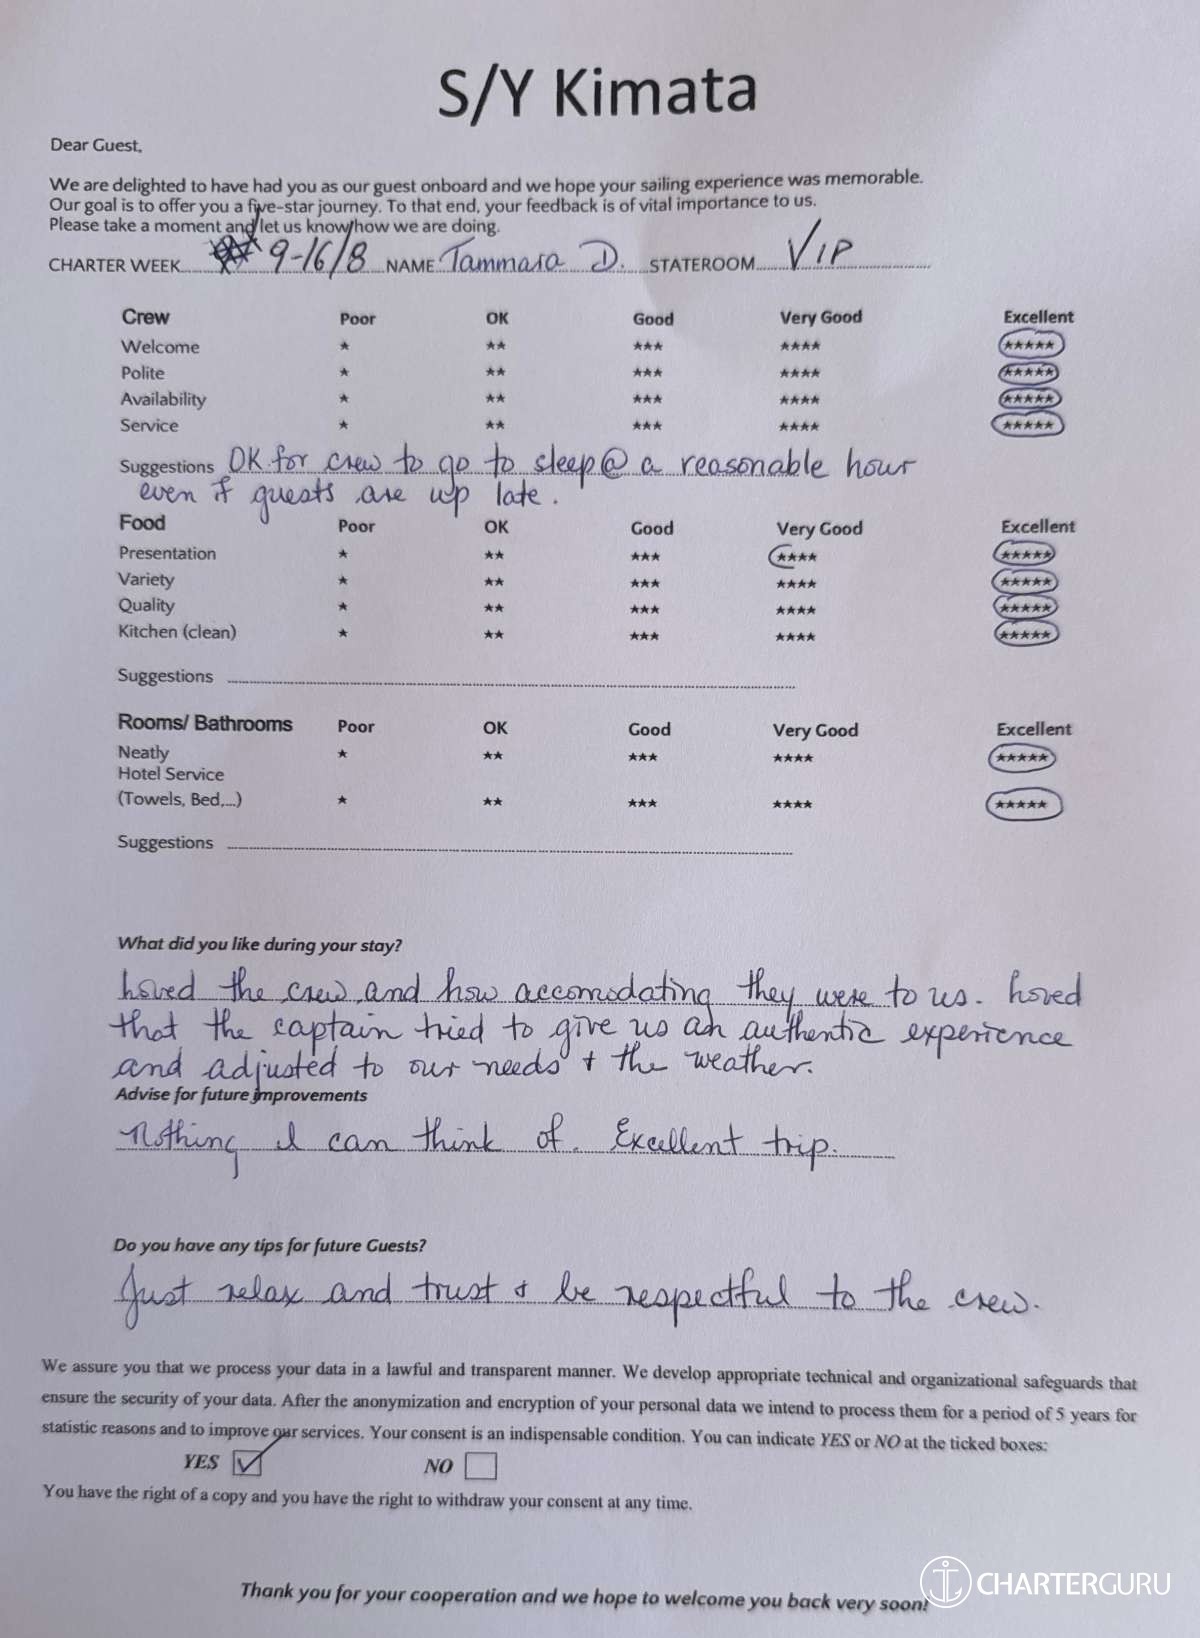 S/Y Kimata
Dear Guest,
We are delighted to have had you as our guest onboard and we hope your sailing experience was memorable.
Our goal is to offer you a five-star journey. To that end, your feedback is of vital importance to us.
Please take a moment and let us know how we are doing.
CHARTER WEEK 9-16/8 NAME Tammara D. STATEROOM VIP
Crew Poor OK Good Very Good Excellent
Welcome ★ ★★ ★★★ ★★★★ ★★★★★
Polite ★ ★★ ★★★ ★★★★ ★★★★★
Availability ★ ★★ ★★★ ★★★★ ★★★★★
Service ★ ★★ ★★★ ★★★★ ★★★★★
Suggestions OK for crew to go to sleep @ a reasonable hour
even if guests are up late.
Food Poor OK Good Very Good Excellent
Presentation ★ ★★ ★★★ ★★★★ ★★★★★
Variety ★ ★★ ★★★ ★★★★ ★★★★★
Quality ★ ★★ ★★★ ★★★★ ★★★★★
Kitchen (clean) ★ ★★ ★★★ ★★★★ ★★★★★
Suggestions
Rooms/ Bathrooms Poor OK Good Very Good Excellent
Neatly ★ ★★ ★★★ ★★★★ ★★★★★
Hotel Service
(Towels, Bed,...) ★ ★★ ★★★ ★★★★ ★★★★★
Suggestions
What did you like during your stay?
Loved the crew and how accomodating they were to us. Loved
that the captain tried to give us an authentic experience
and adjusted to our needs + the weather.
Advise for future improvements
Nothing I can think of. Excellent trip.
Do you have any tips for future Guests?
Just relax and trust + be respectful to the crew.
We assure you that we process your data in a lawful and transparent manner. We develop appropriate technical and organizational safeguards that
ensure the security of your data. After the anonymization and encryption of your personal data we intend to process them for a period of 5 years for
statistic reasons and to improve our services. Your consent is an indispensable condition. You can indicate YES or NO at the ticked boxes:
YES NO
You have the right of a copy and you have the right to withdraw your consent at any time.
Thank you for your cooperation and we hope to welcome you back very soon!
CHARTERGURU